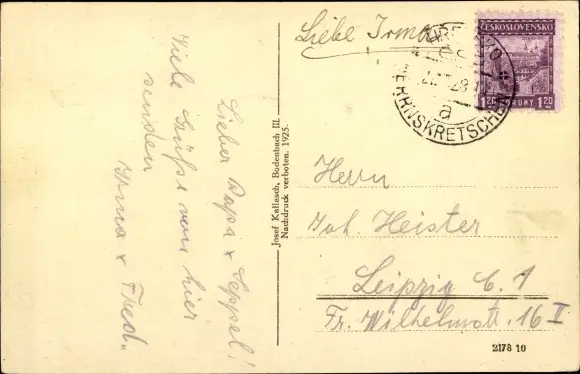 Lieber Papa & Seppel!
Viele Grüße von hier
senden
Irma & Fred.
Josef Kallasch, Bodenbach III.
Nachdruck verboten. 1925.
Liebe Irma
ČESKOSLOVENSKO
1.20 KORUNY 1.20
HŘENSKO
28
a
HERRNSKRETSCHEN
Herrn
Joh. Heister
Leipzig C. 1
Fr. Wilhelmstr. 16 II
2178 10